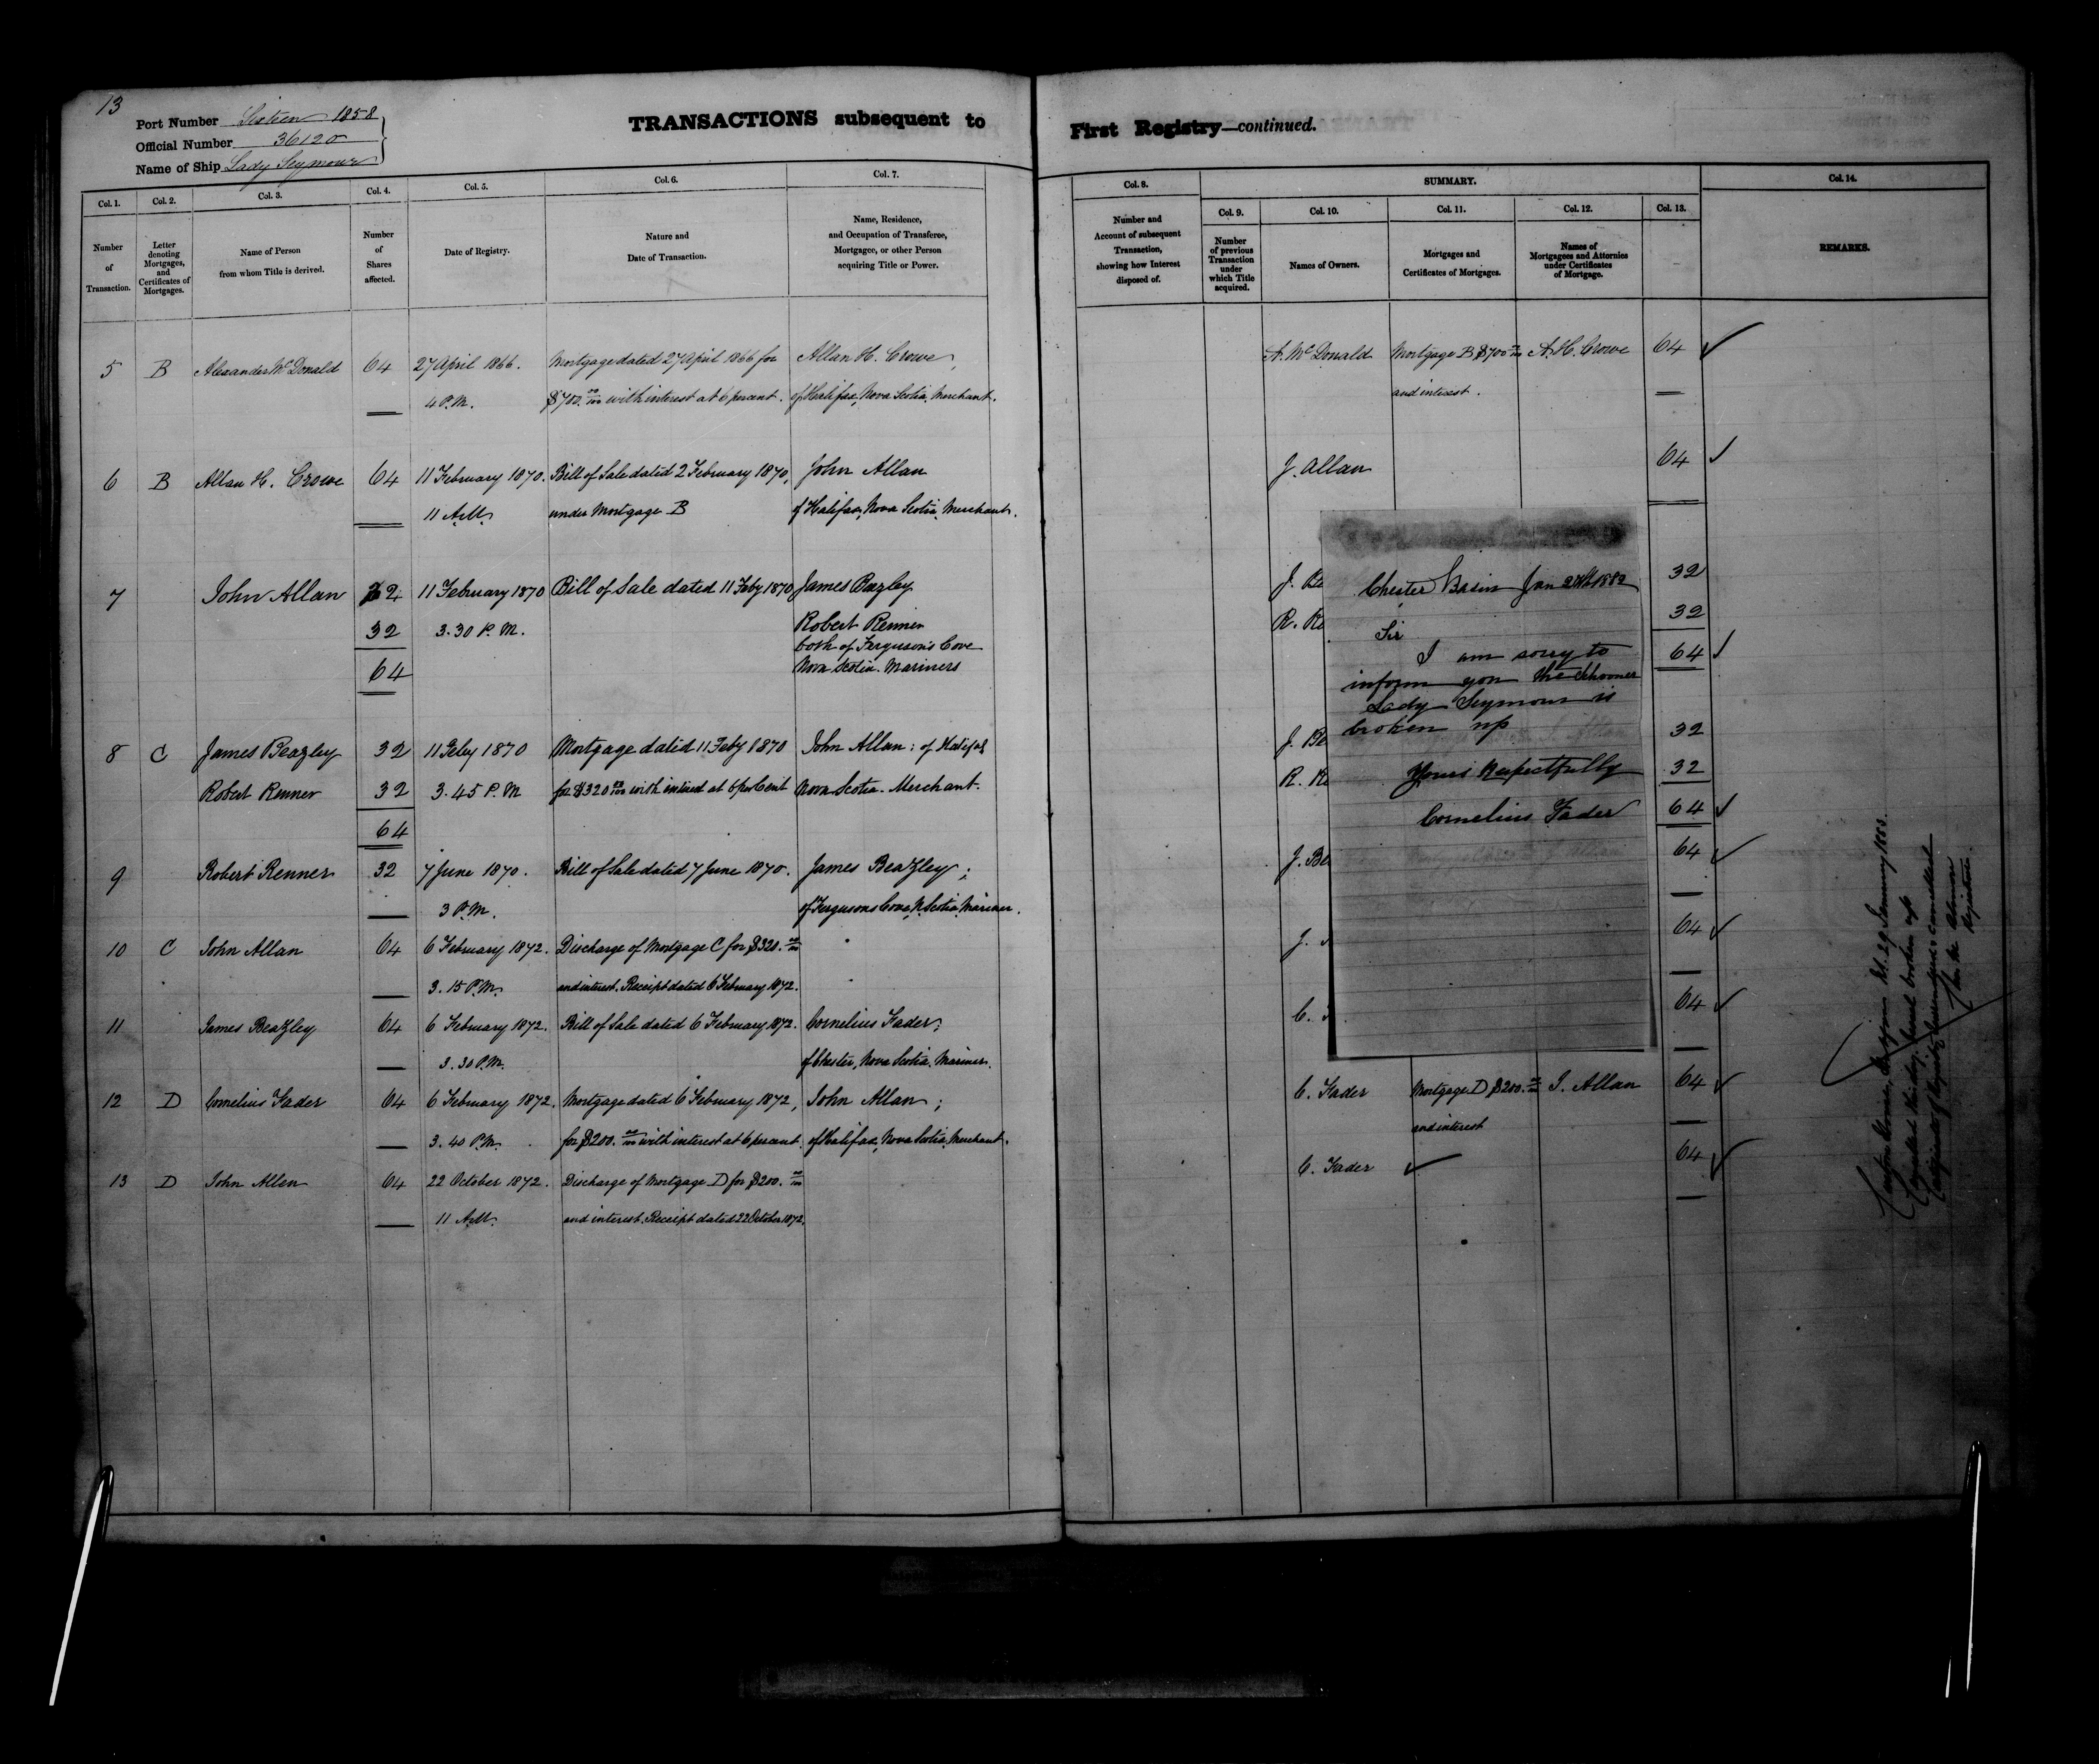 13
Port Number Sixteen 1858
Official Number 36120
Name of Ship Lady Seymour
TRANSACTIONS subsequent to
Col. 1. Col. 2. Col. 3. Col. 4. Col. 5. Col. 6. Col. 7.
Number of Transaction.
Letter denoting Mortgages, and Certificates of Mortgages.
Name of Person from whom Title is derived.
Number of Shares affected.
Date of Registry.
Nature and Date of Transaction.
Name, Residence, and Occupation of Transferee, Mortgagee, or other Person acquiring Title or Power.
5 B Alexander McDonald 64 27 April 1866. Mortgage dated 27 April 1866 for Allan H. Crowe,
4 P.M. $700.00/100 with interest at 6 percent. of Halifax, Nova Scotia, Merchant.
6 B Allan H. Crowe 64 11 February 1870. Bill of Sale dated 2 February 1870, John Allan
11 A.M. under Mortgage B of Halifax, Nova Scotia, Merchant.
7 John Allan 32 11 February 1870 Bill of Sale dated 11 Feby 1870 James Beazley
32 3.30 P.M. Robert Renner
both of Ferguson's Cove
64 Nova Scotia. Mariners
8 C James Beazley 32 11 Feby 1870 Mortgage dated 11 Feby 1870 John Allan: of Halifax
Robert Renner 32 3.45 P.M for $320 00/100 with interest at 6 per Cent Nova Scotia. Merchant.
64
9 Robert Renner 32 7 June 1870. Bill of Sale dated 7 June 1870. James Beazley;
3 P.M. of Fergusons Cove, N. Scotia, Mariner.
10 C John Allan 64 6 February 1872. Discharge of Mortgage C for $320.00/100
3.15 P.M. and interest. Receipt dated 6 February 1872.
11 James Beazley 64 6 February 1872. Bill of Sale dated 6 February 1872. Cornelius Fader;
3.30 P.M. of Chester, Nova Scotia. Mariner.
12 D Cornelius Fader 64 6 February 1872. Mortgage dated 6 February 1872, John Allan;
3.40 P.M. for $200.00/100 with interest at 6 percent. of Halifax, Nova Scotia, Merchant.
13 D John Allen 64 22 October 1872. Discharge of Mortgage D for $200.00/100
11 A.M. and interest. Receipt dated 22 October 1872.
First Registry—continued.
Col. 8. SUMMARY. Col. 14.
Col. 9. Col. 10. Col. 11. Col. 12. Col. 13.
Number and Account of subsequent Transaction, showing how Interest disposed of.
Number of previous Transaction under which Title acquired.
Names of Owners.
Mortgages and Certificates of Mortgages.
Names of Mortgagees and Attornies under Certificates of Mortgage.
REMARKS.
A. McDonald Mortgage B $700 00/100 A. H. Crowe 64
and interest.
J. Allan 64
J. Be 32
R. Re 32
64
J. Be 32
R. Re 32
64
J. Be 64
J. 64
C. 64
C. Fader Mortgage D $200.00/100 J. Allan 64
and interest
C. Fader 64
Chester Basin Jan 1882
Sir
I am sorry to
inform you the Schooner
Lady Seymour is
broken up
Yours Respectfully
Cornelius Fader
29 January 1883.
this day, broken up
Registrar